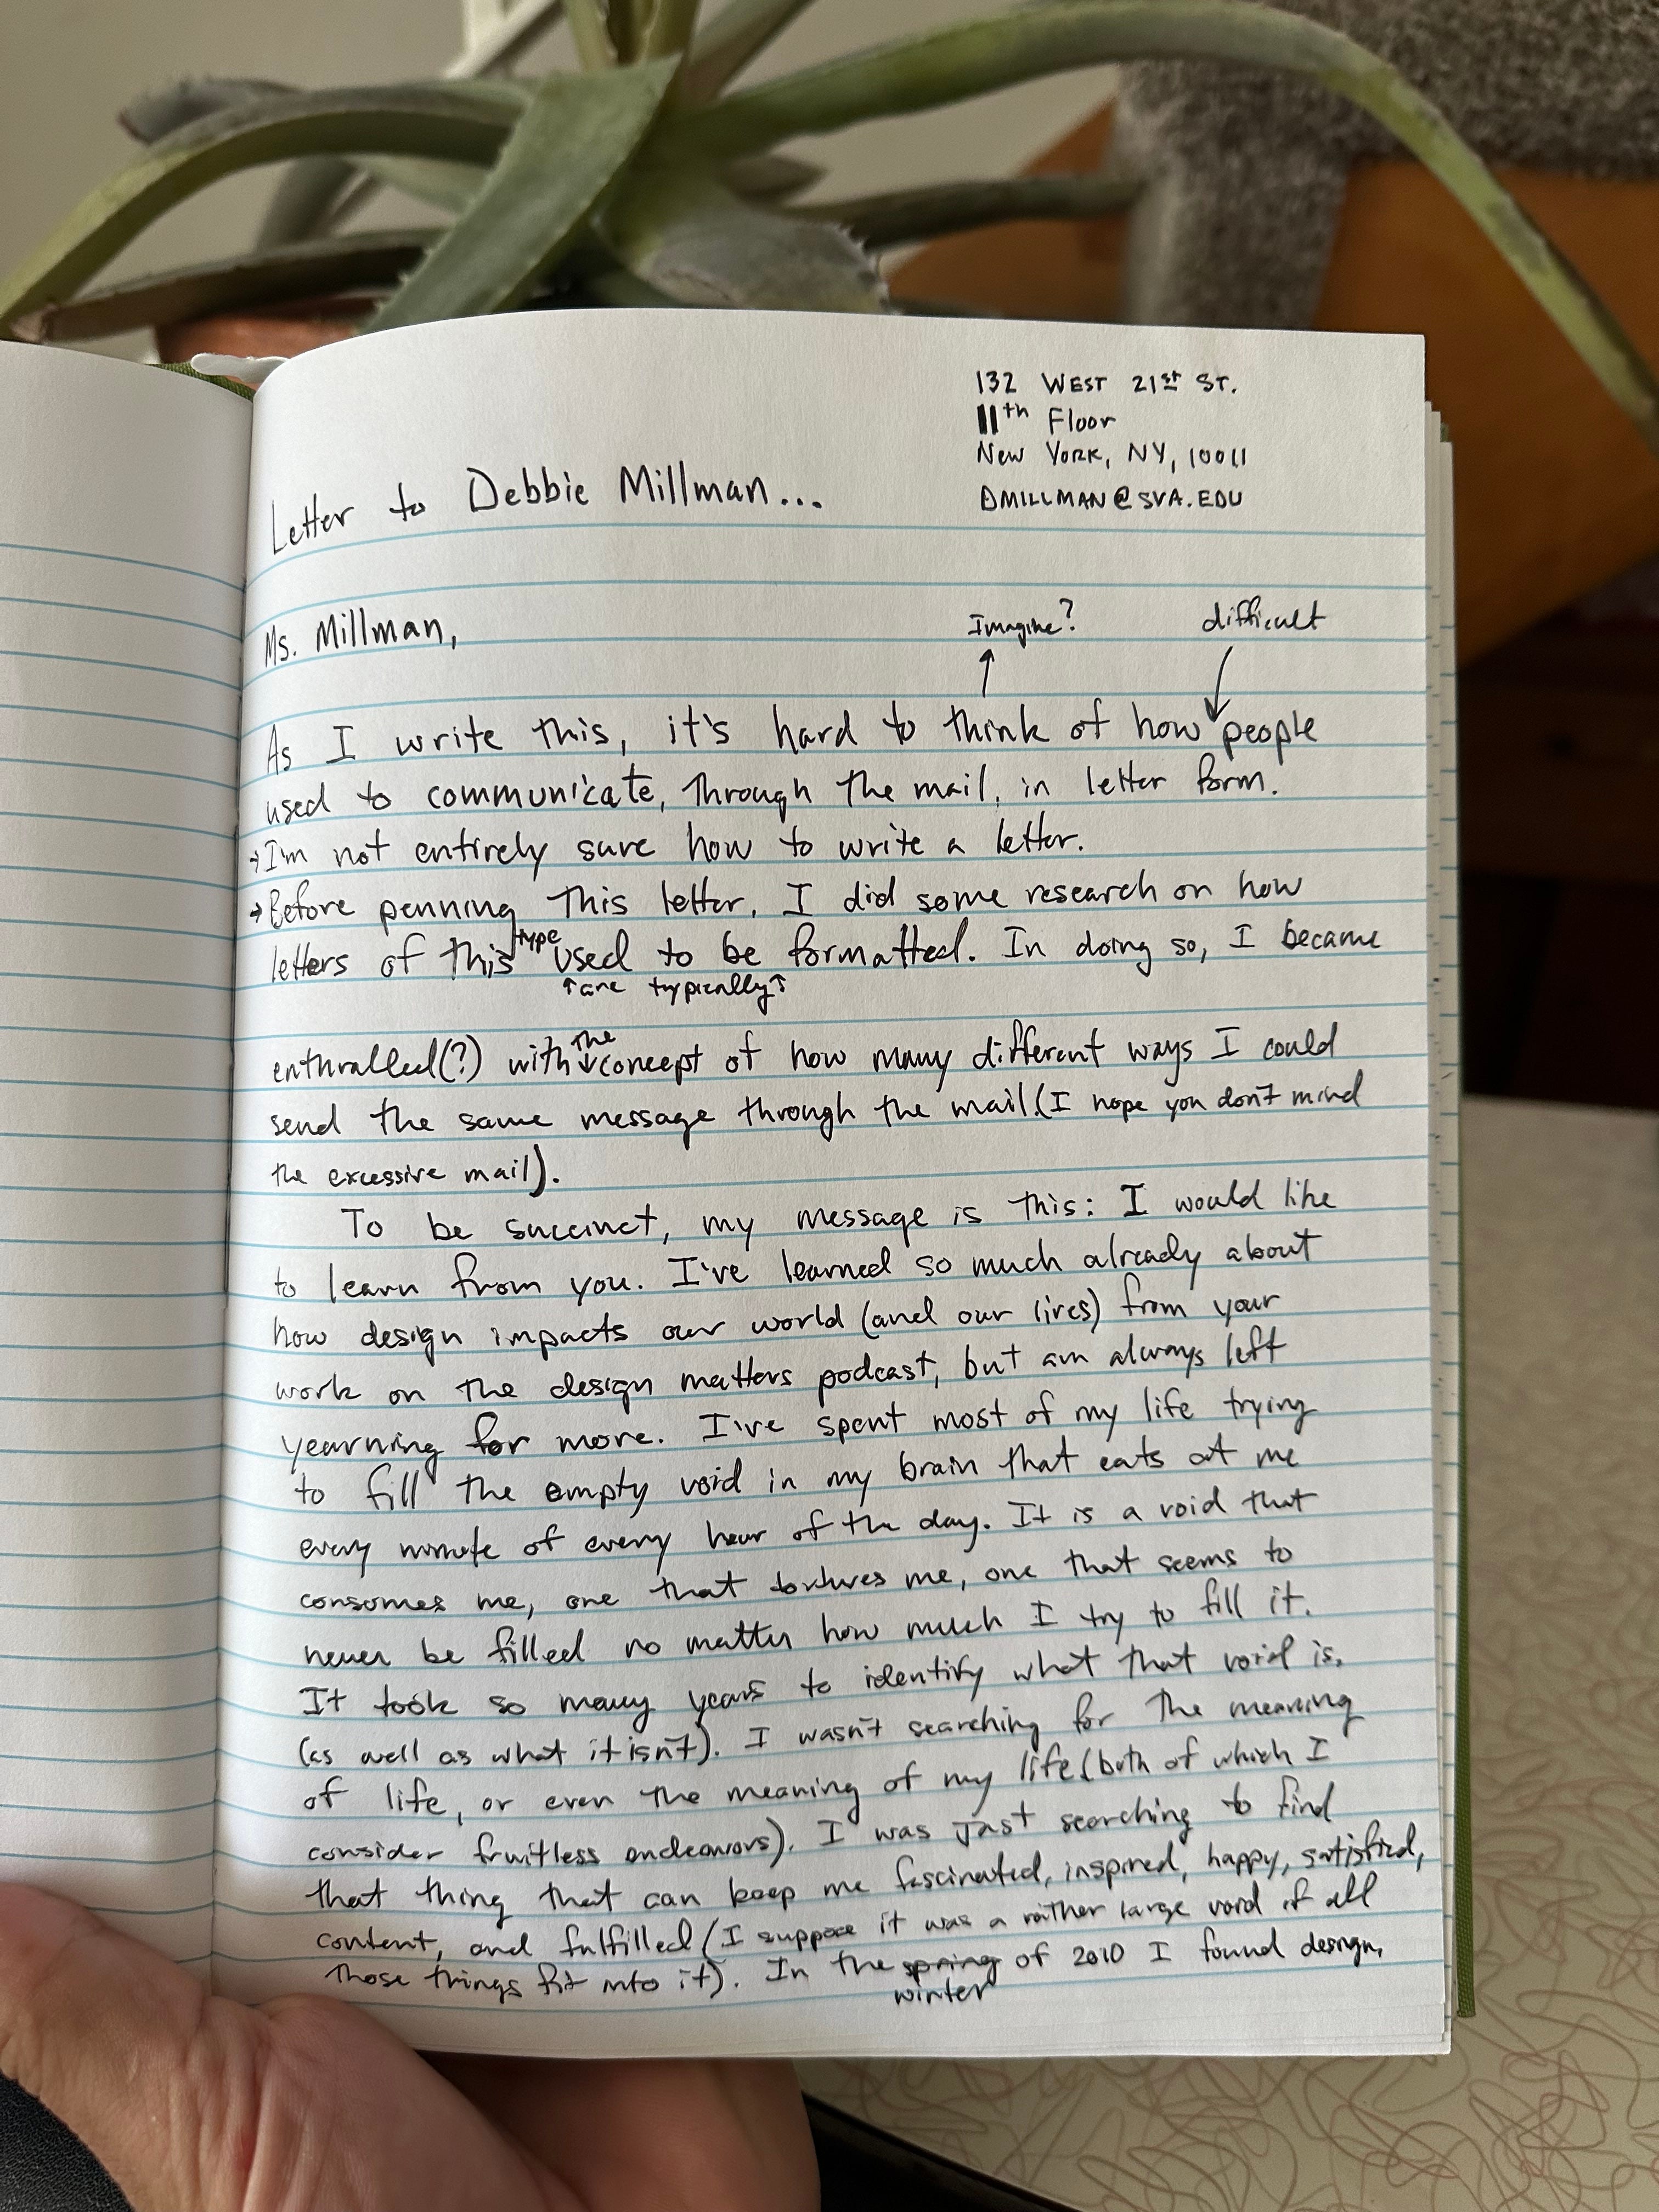 132 WEST 21st ST.
11th Floor
New York, NY, 10011
DMILLMAN@SVA.EDU
Letter to Debbie Millman...
Ms. Millman,
Imagine?
difficult
As I write this, it's hard to think of how people
used to communicate, through the mail, in letter form.
→I'm not entirely sure how to write a letter.
→Before penning this letter, I did some research on how
type
letters of this used to be formatted. In doing so, I became
↑are typically↑
the
enthralled(?) with ↓concept of how many different ways I could
send the same message through the mail.(I hope you don't mind
the excessive mail).
To be succinct, my message is this: I would like
to learn from you. I've learned so much already about
how design impacts our world (and our lives) from your
work on the design matters podcast, but am always left
yearning for more. I've spent most of my life trying
to fill the empty void in my brain that eats at me
every minute of every hour of the day. It is a void that
consumes me, one that tortures me, one that seems to
never be filled no matter how much I try to fill it.
It took so many years to identify what that void is,
(as well as what it isn't). I wasn't searching for the meaning
of life, or even the meaning of my life (both of which I
consider fruitless endeavors). I was just searching to find
that thing that can keep me fascinated, inspired, happy, satisfied,
content, and fulfilled (I suppose it was a rather large void if all
those things fit into it). In the spring of 2010 I found design,
winter